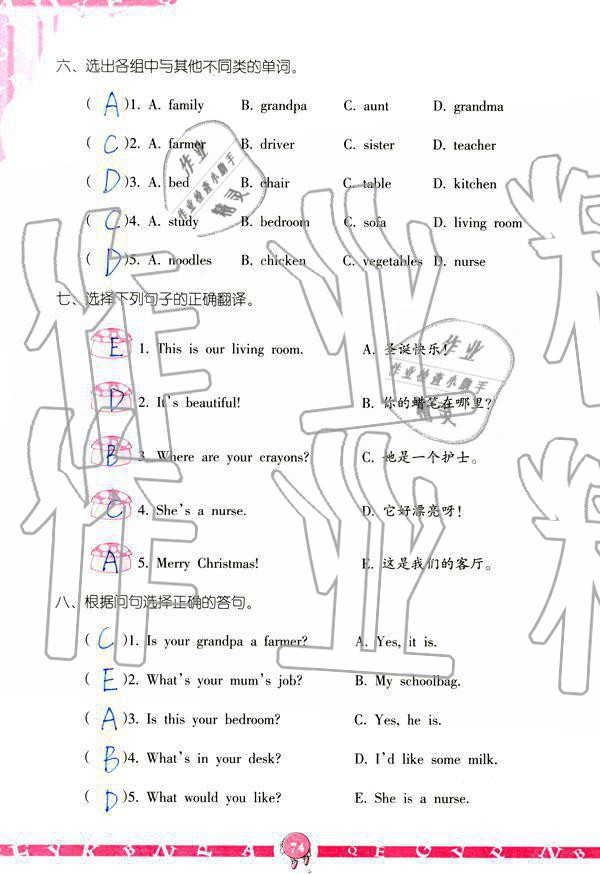 六、选出各组中与其他不同类的单词。
( A )1. A. family B. grandpa C. aunt D. grandma
( C )2. A. farmer B. driver C. sister D. teacher
( D )3. A. bed B. chair C. table D. kitchen
( C )4. A. study B. bedroom C. sofa D. living room
( D )5. A. noodles B. chicken C. vegetables D. nurse
七、选择下列句子的正确翻译。
E 1. This is our living room. A. 圣诞快乐!
D 2. It's beautiful! B. 你的蜡笔在哪里?
B 3. Where are your crayons? C. 她是一个护士。
C 4. She's a nurse. D. 它好漂亮呀!
A 5. Merry Christmas! E. 这是我们的客厅。
八、根据问句选择正确的答句。
( C )1. Is your grandpa a farmer? A. Yes, it is.
( E )2. What's your mum's job? B. My schoolbag.
( A )3. Is this your bedroom? C. Yes, he is.
( B )4. What's in your desk? D. I'd like some milk.
( D )5. What would you like? E. She is a nurse.
74
作业
作业检查小帮手
精灵
作业
作业检查小帮手
精灵
作业
作业